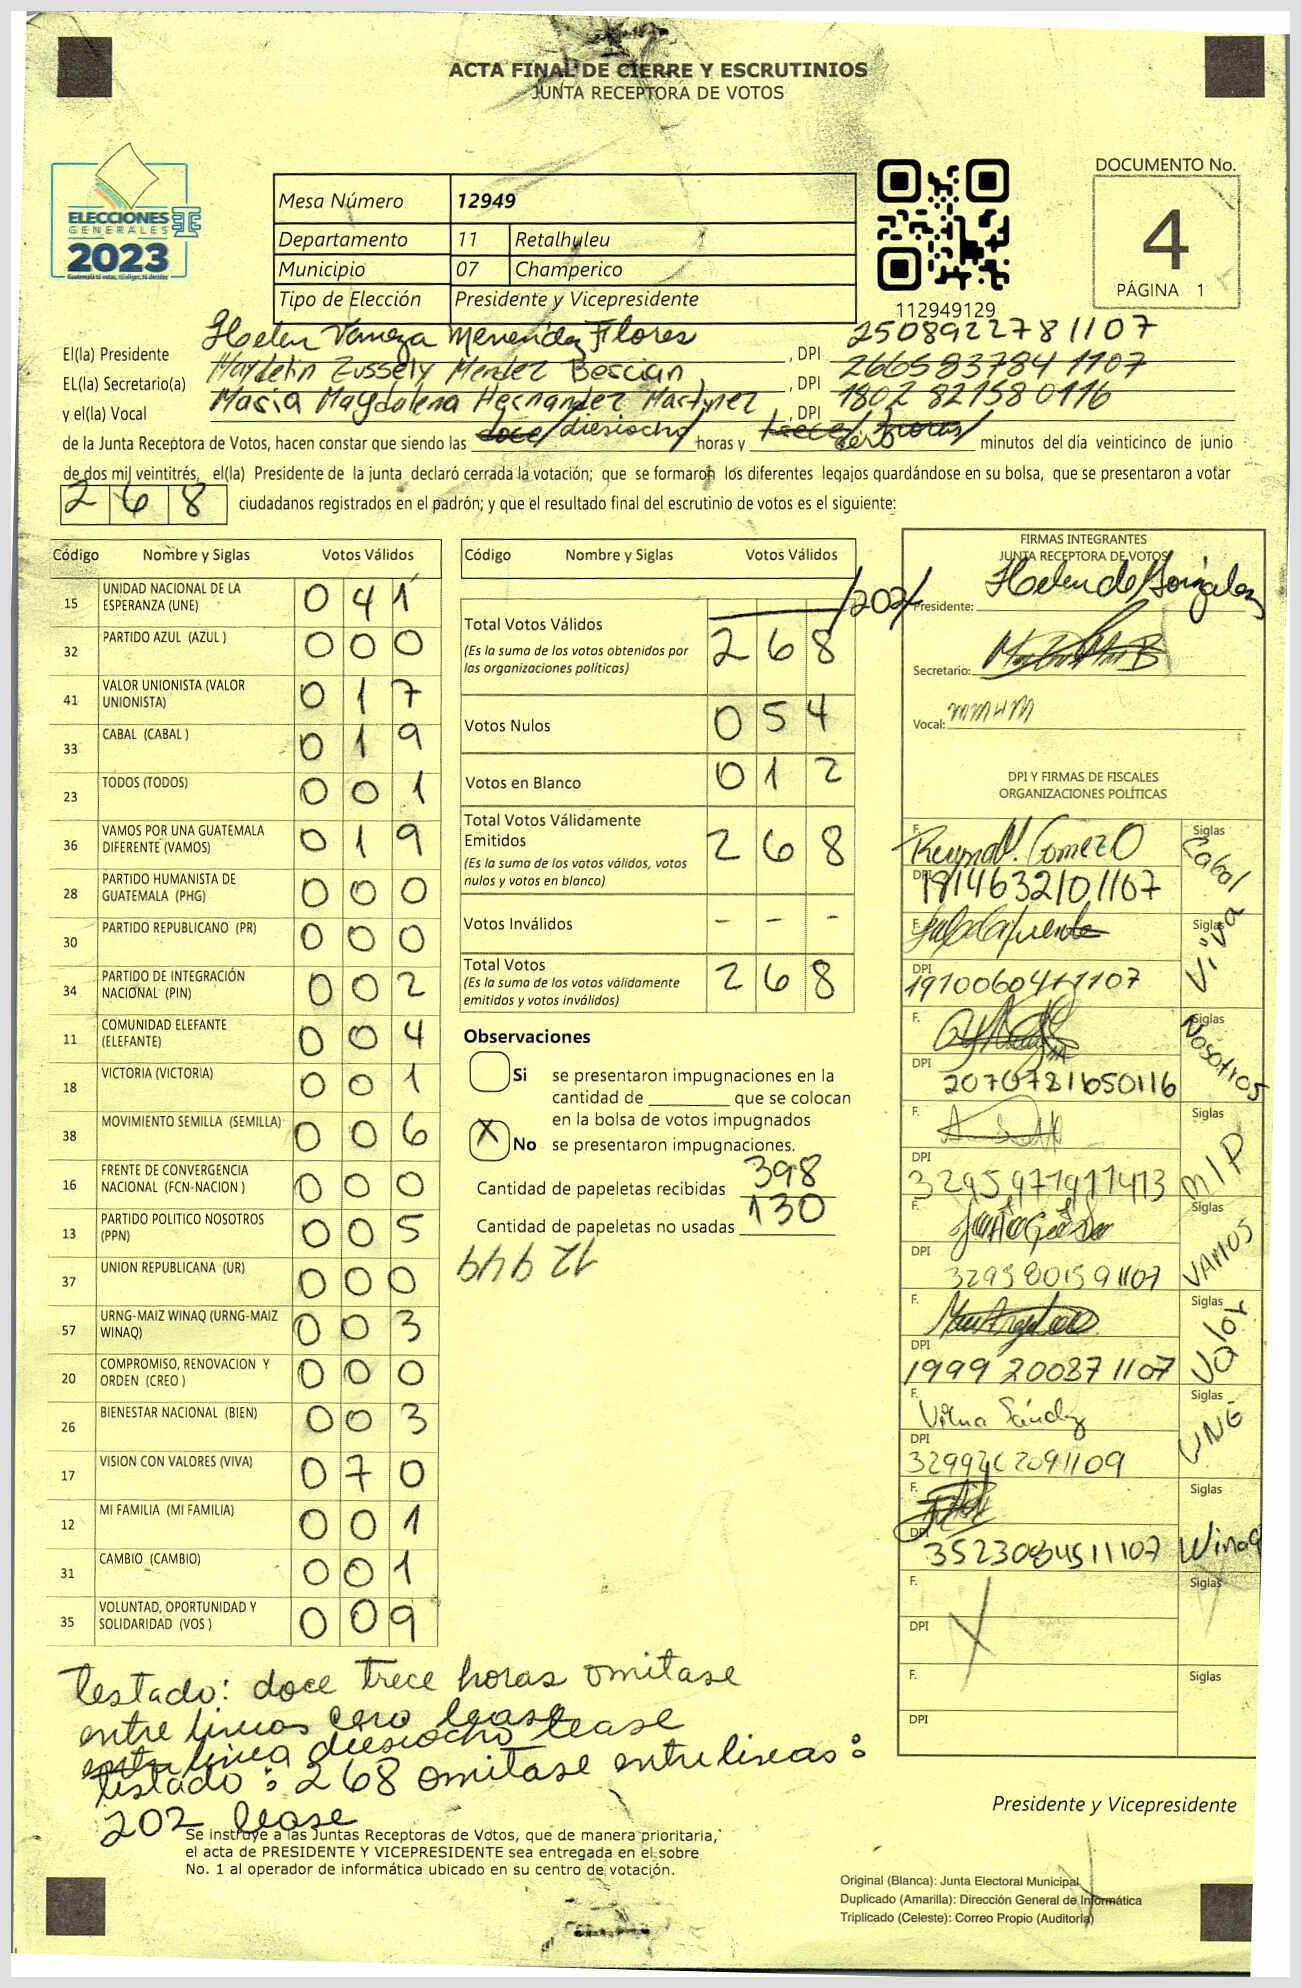 ACTA FINAL DE CIERRE Y ESCRUTINIOS
JUNTA RECEPTORA DE VOTOS
ELECCIONES
GENERALES
2023
Mesa Número 12949
Departamento 11 Retalhuleu
Municipio 07 Champerico
Tipo de Elección Presidente y Vicepresidente
112949129
DOCUMENTO No.
4
PÁGINA 1
El(la) Presidente Helen Vaneza Menendez Flores, DPI 2508922781107
EL(la) Secretario(a) Haydelin Zussely Mendez Bescian, DPI 2665937841107
y el(la) Vocal Maria Magdalena Hernandez Martinez, DPI 1802821580116
de la Junta Receptora de Votos, hacen constar que siendo las doce/diesiocho/ horas y trece/horas/ cero minutos del día veinticinco de junio
de dos mil veintitrés, el(la) Presidente de la junta declaró cerrada la votación; que se formaron los diferentes legajos quardándose en su bolsa, que se presentaron a votar
268 ciudadanos registrados en el padrón; y que el resultado final del escrutinio de votos es el siguiente:
Código Nombre y Siglas Votos Válidos
15 UNIDAD NACIONAL DE LA ESPERANZA (UNE) 041
32 PARTIDO AZUL (AZUL ) 000
41 VALOR UNIONISTA (VALOR UNIONISTA) 017
33 CABAL (CABAL ) 019
23 TODOS (TODOS) 001
36 VAMOS POR UNA GUATEMALA DIFERENTE (VAMOS) 019
28 PARTIDO HUMANISTA DE GUATEMALA (PHG) 000
30 PARTIDO REPUBLICANO (PR) 000
34 PARTIDO DE INTEGRACIÓN NACIONAL (PIN) 002
11 COMUNIDAD ELEFANTE (ELEFANTE) 004
18 VICTORIA (VICTORIA) 001
38 MOVIMIENTO SEMILLA (SEMILLA) 006
16 FRENTE DE CONVERGENCIA NACIONAL (FCN-NACION ) 000
13 PARTIDO POLITICO NOSOTROS (PPN) 005
37 UNION REPUBLICANA (UR) 000
57 URNG-MAIZ WINAQ (URNG-MAIZ WINAQ) 003
20 COMPROMISO, RENOVACION Y ORDEN (CREO ) 000
26 BIENESTAR NACIONAL (BIEN) 003
17 VISION CON VALORES (VIVA) 070
12 MI FAMILIA (MI FAMILIA) 001
31 CAMBIO (CAMBIO) 001
35 VOLUNTAD, OPORTUNIDAD Y SOLIDARIDAD (VOS ) 009
Código Nombre y Siglas Votos Válidos
/202/
Total Votos Válidos 268
(Es la suma de los votos obtenidos por
las organizaciones políticas)
Votos Nulos 054
Votos en Blanco 012
Total Votos Válidamente
Emitidos 268
(Es la suma de los votos válidos, votos
nulos y votos en blanco)
Votos Inválidos - - -
Total Votos 268
(Es la suma de los votos válidamente
emitidos y votos inválidos)
Observaciones
Si se presentaron impugnaciones en la
cantidad de ________ que se colocan
en la bolsa de votos impugnados
X No se presentaron impugnaciones.
Cantidad de papeletas recibidas 398
Cantidad de papeletas no usadas 130
12949
FIRMAS INTEGRANTES
JUNTA RECEPTORA DE VOTOS
Presidente: Helen de Gonzalez
Secretario:
Vocal: MMHM
DPI Y FIRMAS DE FISCALES
ORGANIZACIONES POLÍTICAS
F. Siglas Cabal
DPI 1814632101107
F. Siglas Viva
DPI
F. Siglas Nosotros
DPI
F. Siglas MLP
DPI
F. Siglas VAMOS
DPI 3295801591107
F. Siglas Valor
DPI 1999200871107
F. Vilma Sández Siglas UNE
DPI
F. Siglas Winaq
DPI 3523084511107
F. Siglas
DPI
F. Siglas
DPI
Testado: doce trece horas omitase
entre lineas cero lease
entre linea diesiocho lease
testado: 268 omitase entre lineas:
202 lease
Se instruye a las Juntas Receptoras de Votos, que de manera prioritaria,
el acta de PRESIDENTE Y VICEPRESIDENTE sea entregada en el sobre
No. 1 al operador de informática ubicado en su centro de votación.
Presidente y Vicepresidente
Original (Blanca): Junta Electoral Municipal
Duplicado (Amarilla): Dirección General de Informática
Triplicado (Celeste): Correo Propio (Auditoría)